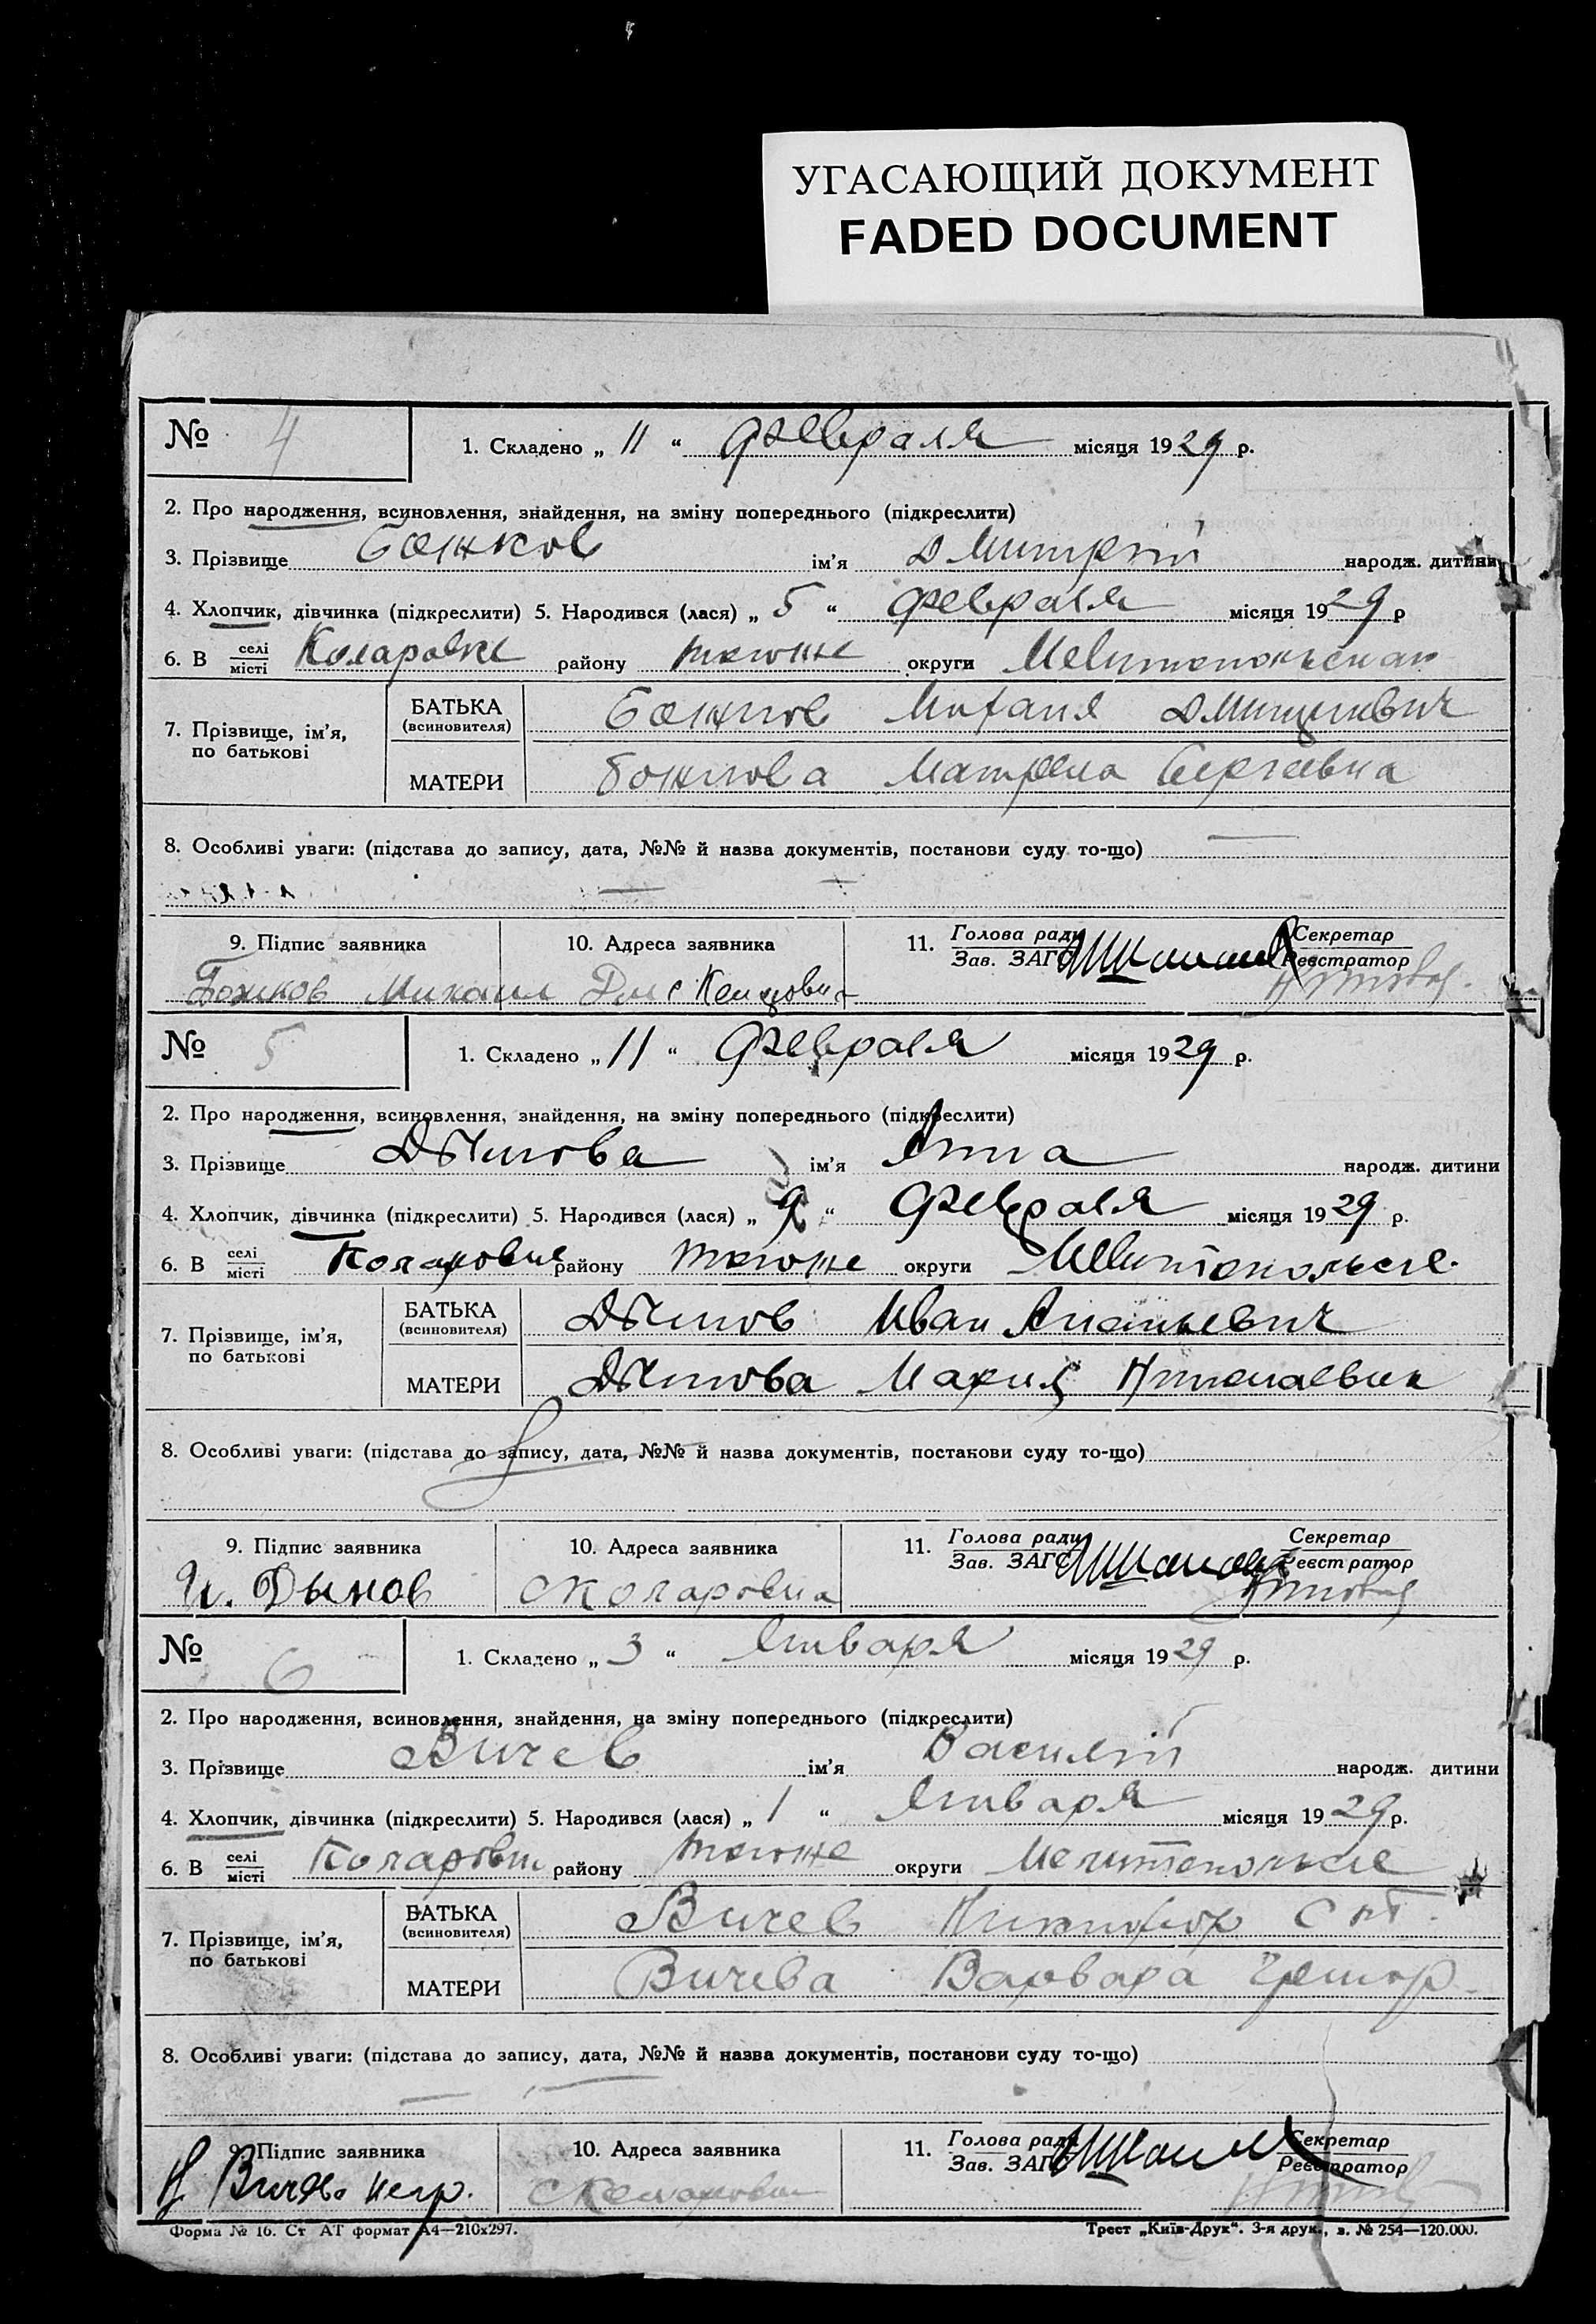 УГАСАЮЩИЙ ДОКУМЕНТ
FADED DOCUMENT
№ 4
1. Складено „ 11 “ февраля місяця 1929 р.
2. Про народження, всиновлення, знайдення, на зміну попереднього (підкреслити)
3. Прізвище Божков ім’я Дмитрий народж. дитини
4. Хлопчик, дівчинка (підкреслити) 5. Народився (лася) „ 5 “ февраля місяця 1929 р
6. В селі місті Коларовке району тогоже округи
7. Прізвище, ім’я, по батькові
БАТЬКА (всиновителя) Божков Михаил
МАТЕРИ Божкова Матрена Сергеевна
8. Особливі уваги: (підстава до запису, дата, №№ й назва документів, постанови суду то-що)
9. Підпис заявника 10. Адреса заявника 11. Голова ради Зав. ЗАГС Секретар Реєстратор
Божков Михаил
№ 5
1. Складено „ 11 “ февраля місяця 1929 р.
2. Про народження, всиновлення, знайдення, на зміну попереднього (підкреслити)
3. Прізвище Дынова ім’я Анна народж. дитини
4. Хлопчик, дівчинка (підкреслити) 5. Народився (лася) „ 9 “ февраля місяця 1929 р.
6. В селі місті Коларовке району тогоже округи Мелитопольске.
7. Прізвище, ім’я, по батькові
БАТЬКА (всиновителя) Дынов Иван Ананьевич
МАТЕРИ Дынова Мария Николаевна
8. Особливі уваги: (підстава до запису, дата, №№ й назва документів, постанови суду то-що)
9. Підпис заявника 10. Адреса заявника 11. Голова ради Зав. ЗАГС Секретар Реєстратор
И. Дынов с Коларовка
№ 6
1. Складено „ 3 “ Января місяця 1929 р.
2. Про народження, всиновлення, знайдення, на зміну попереднього (підкреслити)
3. Прізвище Вичев ім’я Василий народж. дитини
4. Хлопчик, дівчинка (підкреслити) 5. Народився (лася) „ 1 “ Января місяця 1929 р.
6. В селі місті Коларовки району тогоже округи Мелитопольске
7. Прізвище, ім’я, по батькові
БАТЬКА (всиновителя) Вичев Никифор
МАТЕРИ Вичева Варвара Григор.
8. Особливі уваги: (підстава до запису, дата, №№ й назва документів, постанови суду то-що)
9. Підпис заявника 10. Адреса заявника 11. Голова ради Зав. ЗАГС Секретар Реєстратор
Форма № 16. Ст АТ формат А4—210х297. Трест „Київ-Друк“. 3-я друк., з. № 254—120.000.